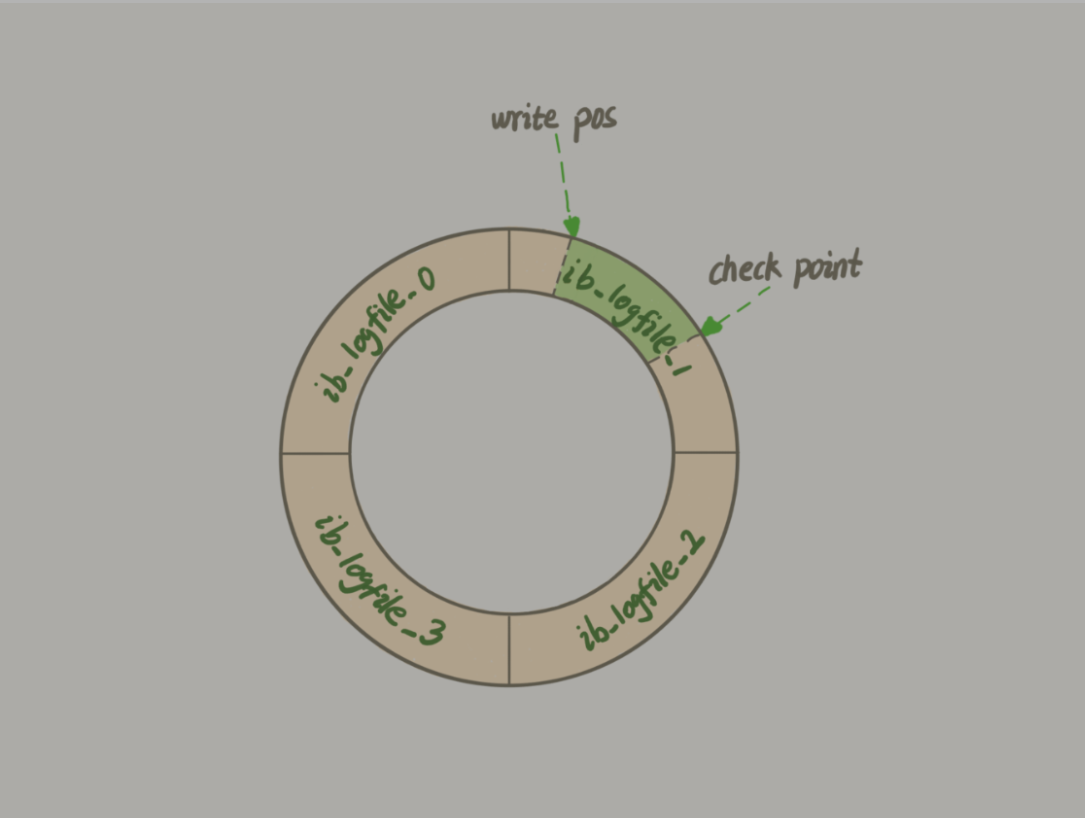 write pos
check point
ib_logfile_0
ib_logfile_1
ib_logfile_3
ib_logfile_2